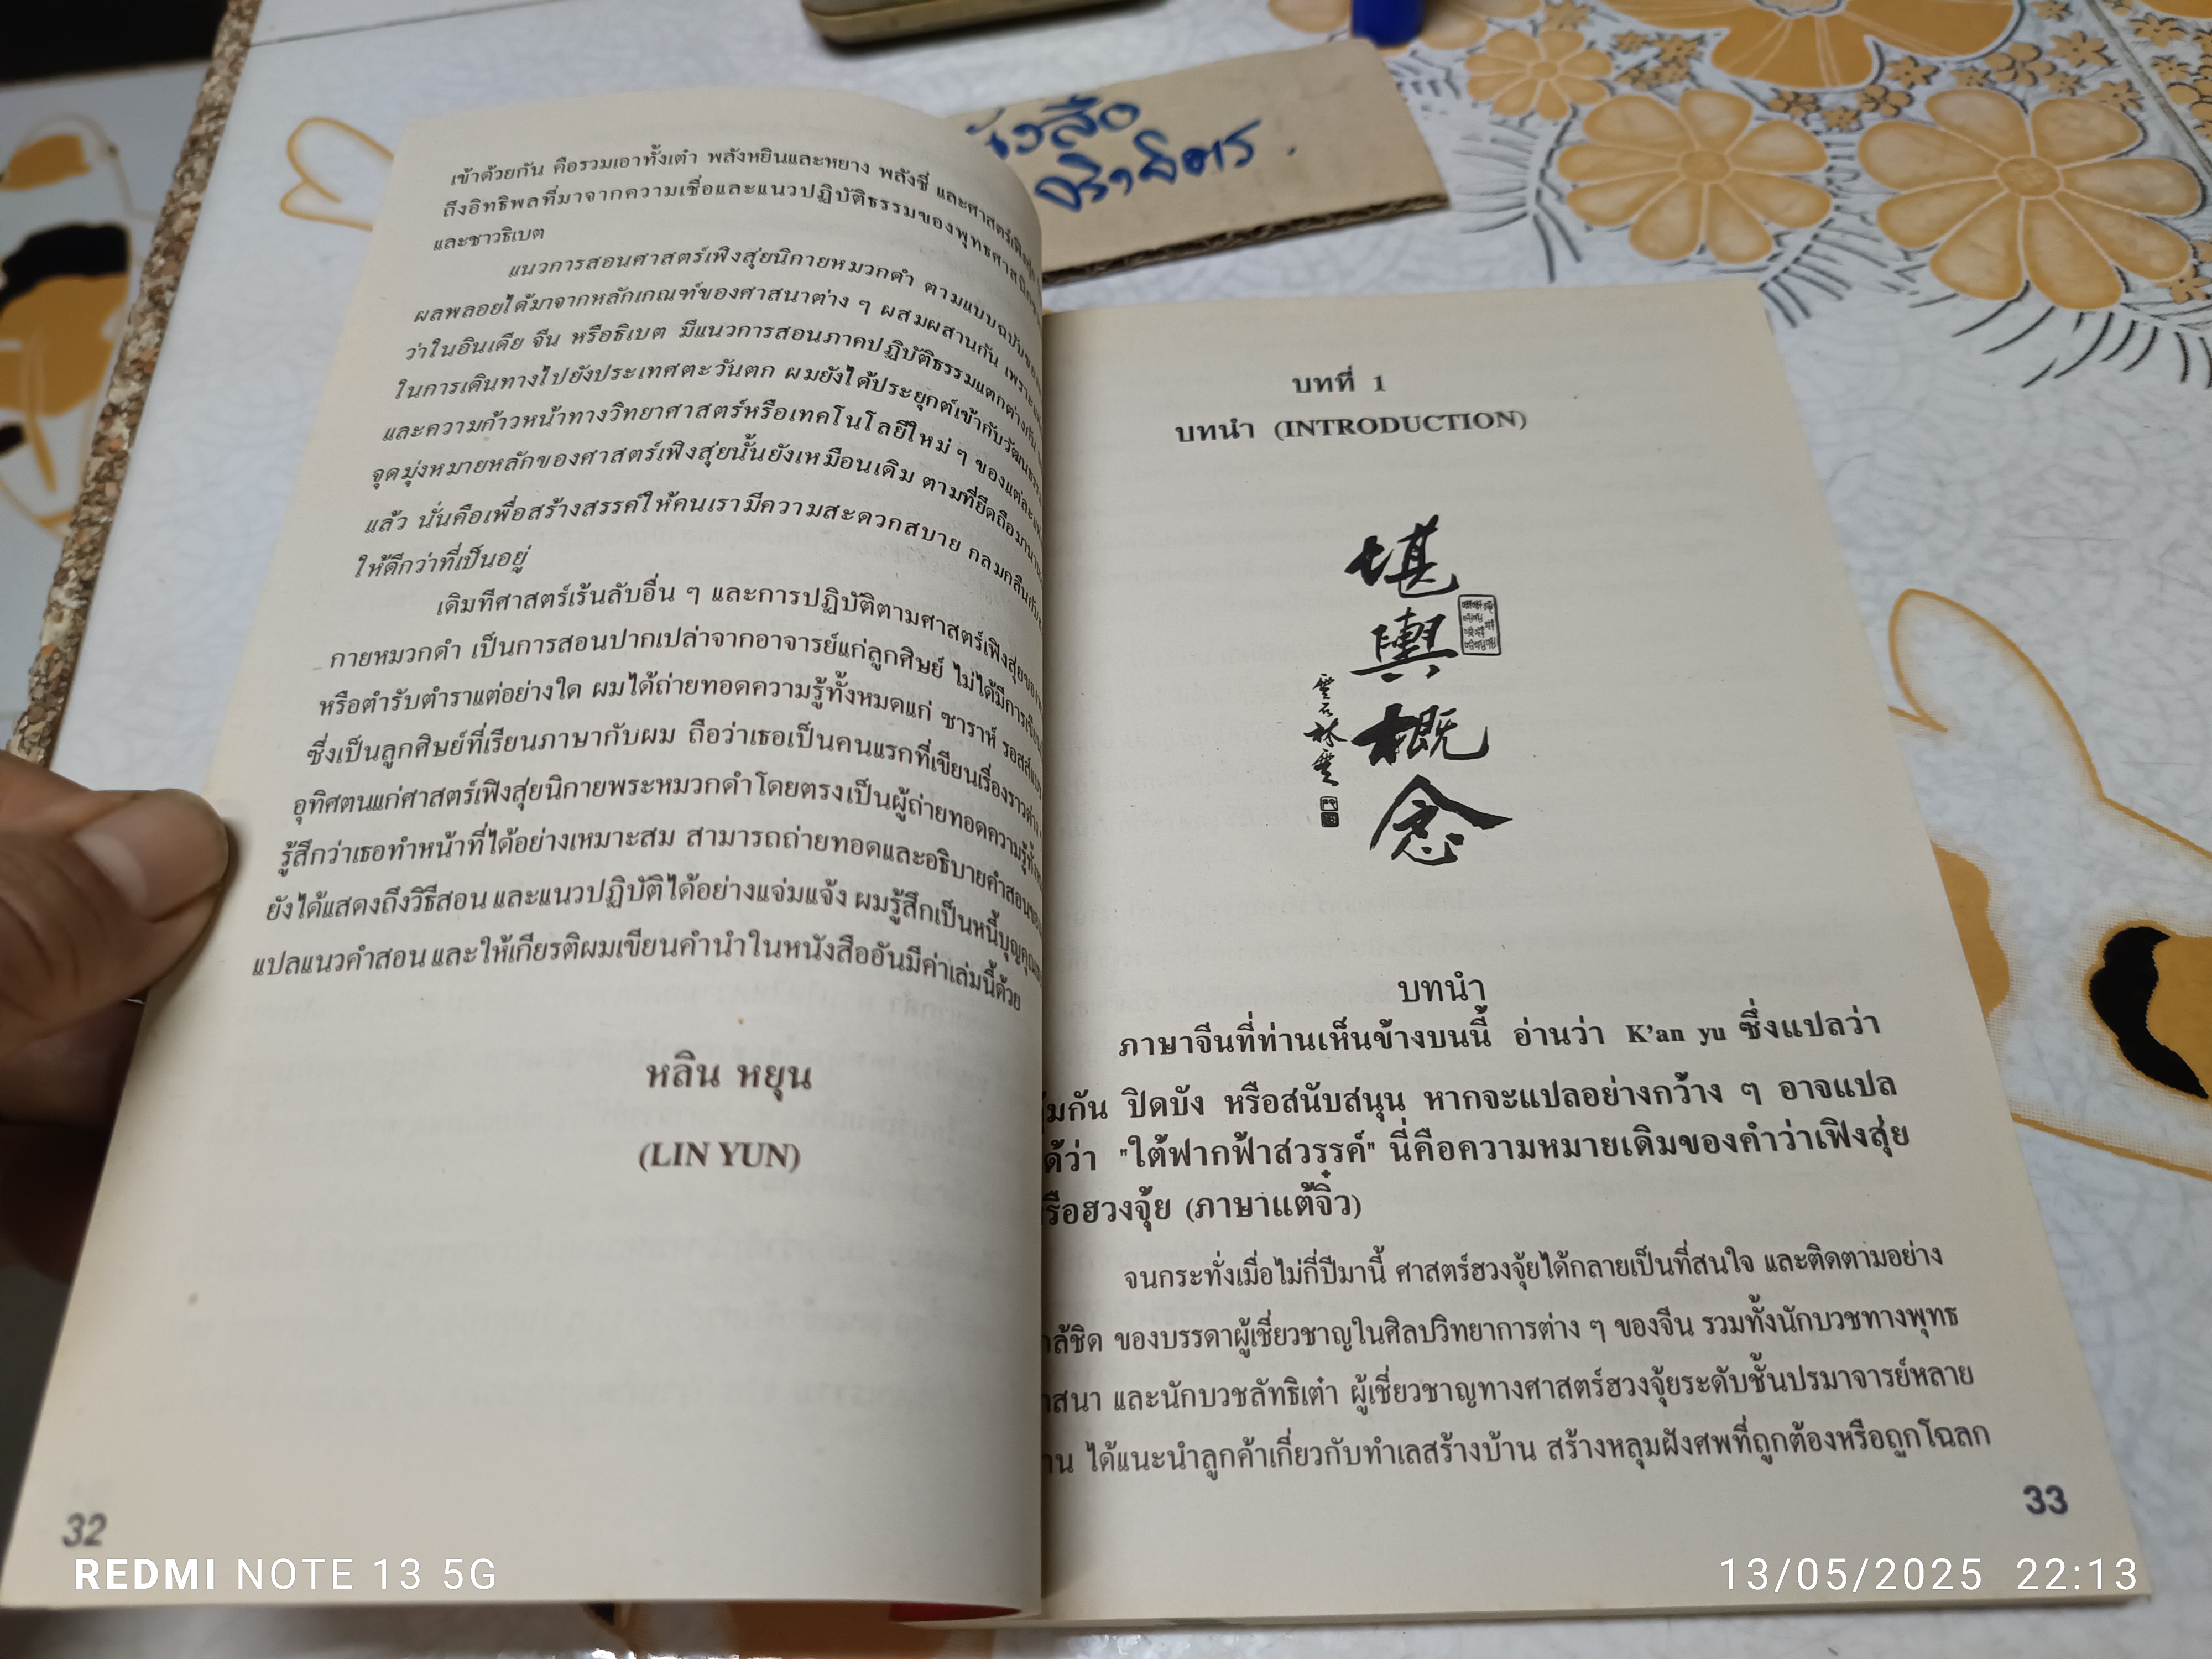 เข้าด้วยกัน คือรวมเอาทั้งเต๋า พลังหยินและหยาง พลังชี่ และศาสตร์เฟิงสุ่ย
ถึงอิทธิพลที่มาจากความเชื่อและแนวปฏิบัติธรรมของพุทธศาสนิกช
และชาวธิเบต
แนวการสอนศาสตร์เฟิงสุ่ยนิกายหมวกดำ ตามแบบฉบับของ
ผลพลอยได้มาจากหลักเกณฑ์ของศาสนาต่าง ๆ ผสมผสานกัน เพราะ
ว่าในอินเดีย จีน หรือธิเบต มีแนวการสอนภาคปฏิบัติธรรมแตกต่างกัน
ในการเดินทางไปยังประเทศตะวันตก ผมยังได้ประยุกต์เข้ากับวัฒนธรร
และความก้าวหน้าทางวิทยาศาสตร์หรือเทคโนโลยีใหม่ ๆ ของแต่ละ
จุดมุ่งหมายหลักของศาสตร์เฟิงสุ่ยนั้นยังเหมือนเดิม ตามที่ยึดถือมานาน
แล้ว นั่นคือเพื่อสร้างสรรค์ให้คนเรามีความสะดวกสบาย กลมกลืนกับ
ให้ดีกว่าที่เป็นอยู่
เดิมทีศาสตร์เร้นลับอื่น ๆ และการปฏิบัติตามศาสตร์เฟิงสุ่ยของ
กายหมวกดำ เป็นการสอนปากเปล่าจากอาจารย์แก่ลูกศิษย์ ไม่ได้มีการเขียน
หรือตำรับตำราแต่อย่างใด ผมได้ถ่ายทอดความรู้ทั้งหมดแก่ ซาราห์ รอสส์แบ
ซึ่งเป็นลูกศิษย์ที่เรียนภาษากับผม ถือว่าเธอเป็นคนแรกที่เขียนเรื่องราว
อุทิศตนแก่ศาสตร์เฟิงสุ่ยนิกายพระหมวกดำโดยตรงเป็นผู้ถ่ายทอดความรู้
รู้สึกว่าเธอทำหน้าที่ได้อย่างเหมาะสม สามารถถ่ายทอดและอธิบายคำสอนของ
ยังได้แสดงถึงวิธีสอน และแนวปฏิบัติได้อย่างแจ่มแจ้ง ผมรู้สึกเป็นหนี้บุญคุณ
แปลแนวคำสอน และให้เกียรติผมเขียนคำนำในหนังสืออันมีค่าเล่มนี้ด้วย
หลิน หยุน
(LIN YUN)
32
บทที่ 1
บทนำ (INTRODUCTION)
堪
輿
概
念
雲石林雲
บทนำ
ภาษาจีนที่ท่านเห็นข้างบนนี้ อ่านว่า K'an yu ซึ่งแปลว่า
้มกัน ปิดบัง หรือสนับสนุน หากจะแปลอย่างกว้าง ๆ อาจแปล
ด้ว่า "ใต้ฟากฟ้าสวรรค์" นี่คือความหมายเดิมของคำว่าเฟิงสุ่ย
รือฮวงจุ้ย (ภาษาแต้จิ๋ว)
จนกระทั่งเมื่อไม่กี่ปีมานี้ ศาสตร์ฮวงจุ้ยได้กลายเป็นที่สนใจ และติดตามอย่าง
ล้ชิด ของบรรดาผู้เชี่ยวชาญในศิลปวิทยาการต่าง ๆ ของจีน รวมทั้งนักบวชทางพุทธ
าสนา และนักบวชลัทธิเต๋า ผู้เชี่ยวชาญทางศาสตร์ฮวงจุ้ยระดับชั้นปรมาจารย์หลาย
าน ได้แนะนำลูกค้าเกี่ยวกับทำเลสร้างบ้าน สร้างหลุมฝังศพที่ถูกต้องหรือถูกโฉลก
33
REDMI NOTE 13 5G
13/05/2025 22:13